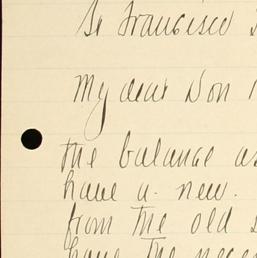 Sn Francisco
My dear Don
the balance as
have a new.
from the old
have the